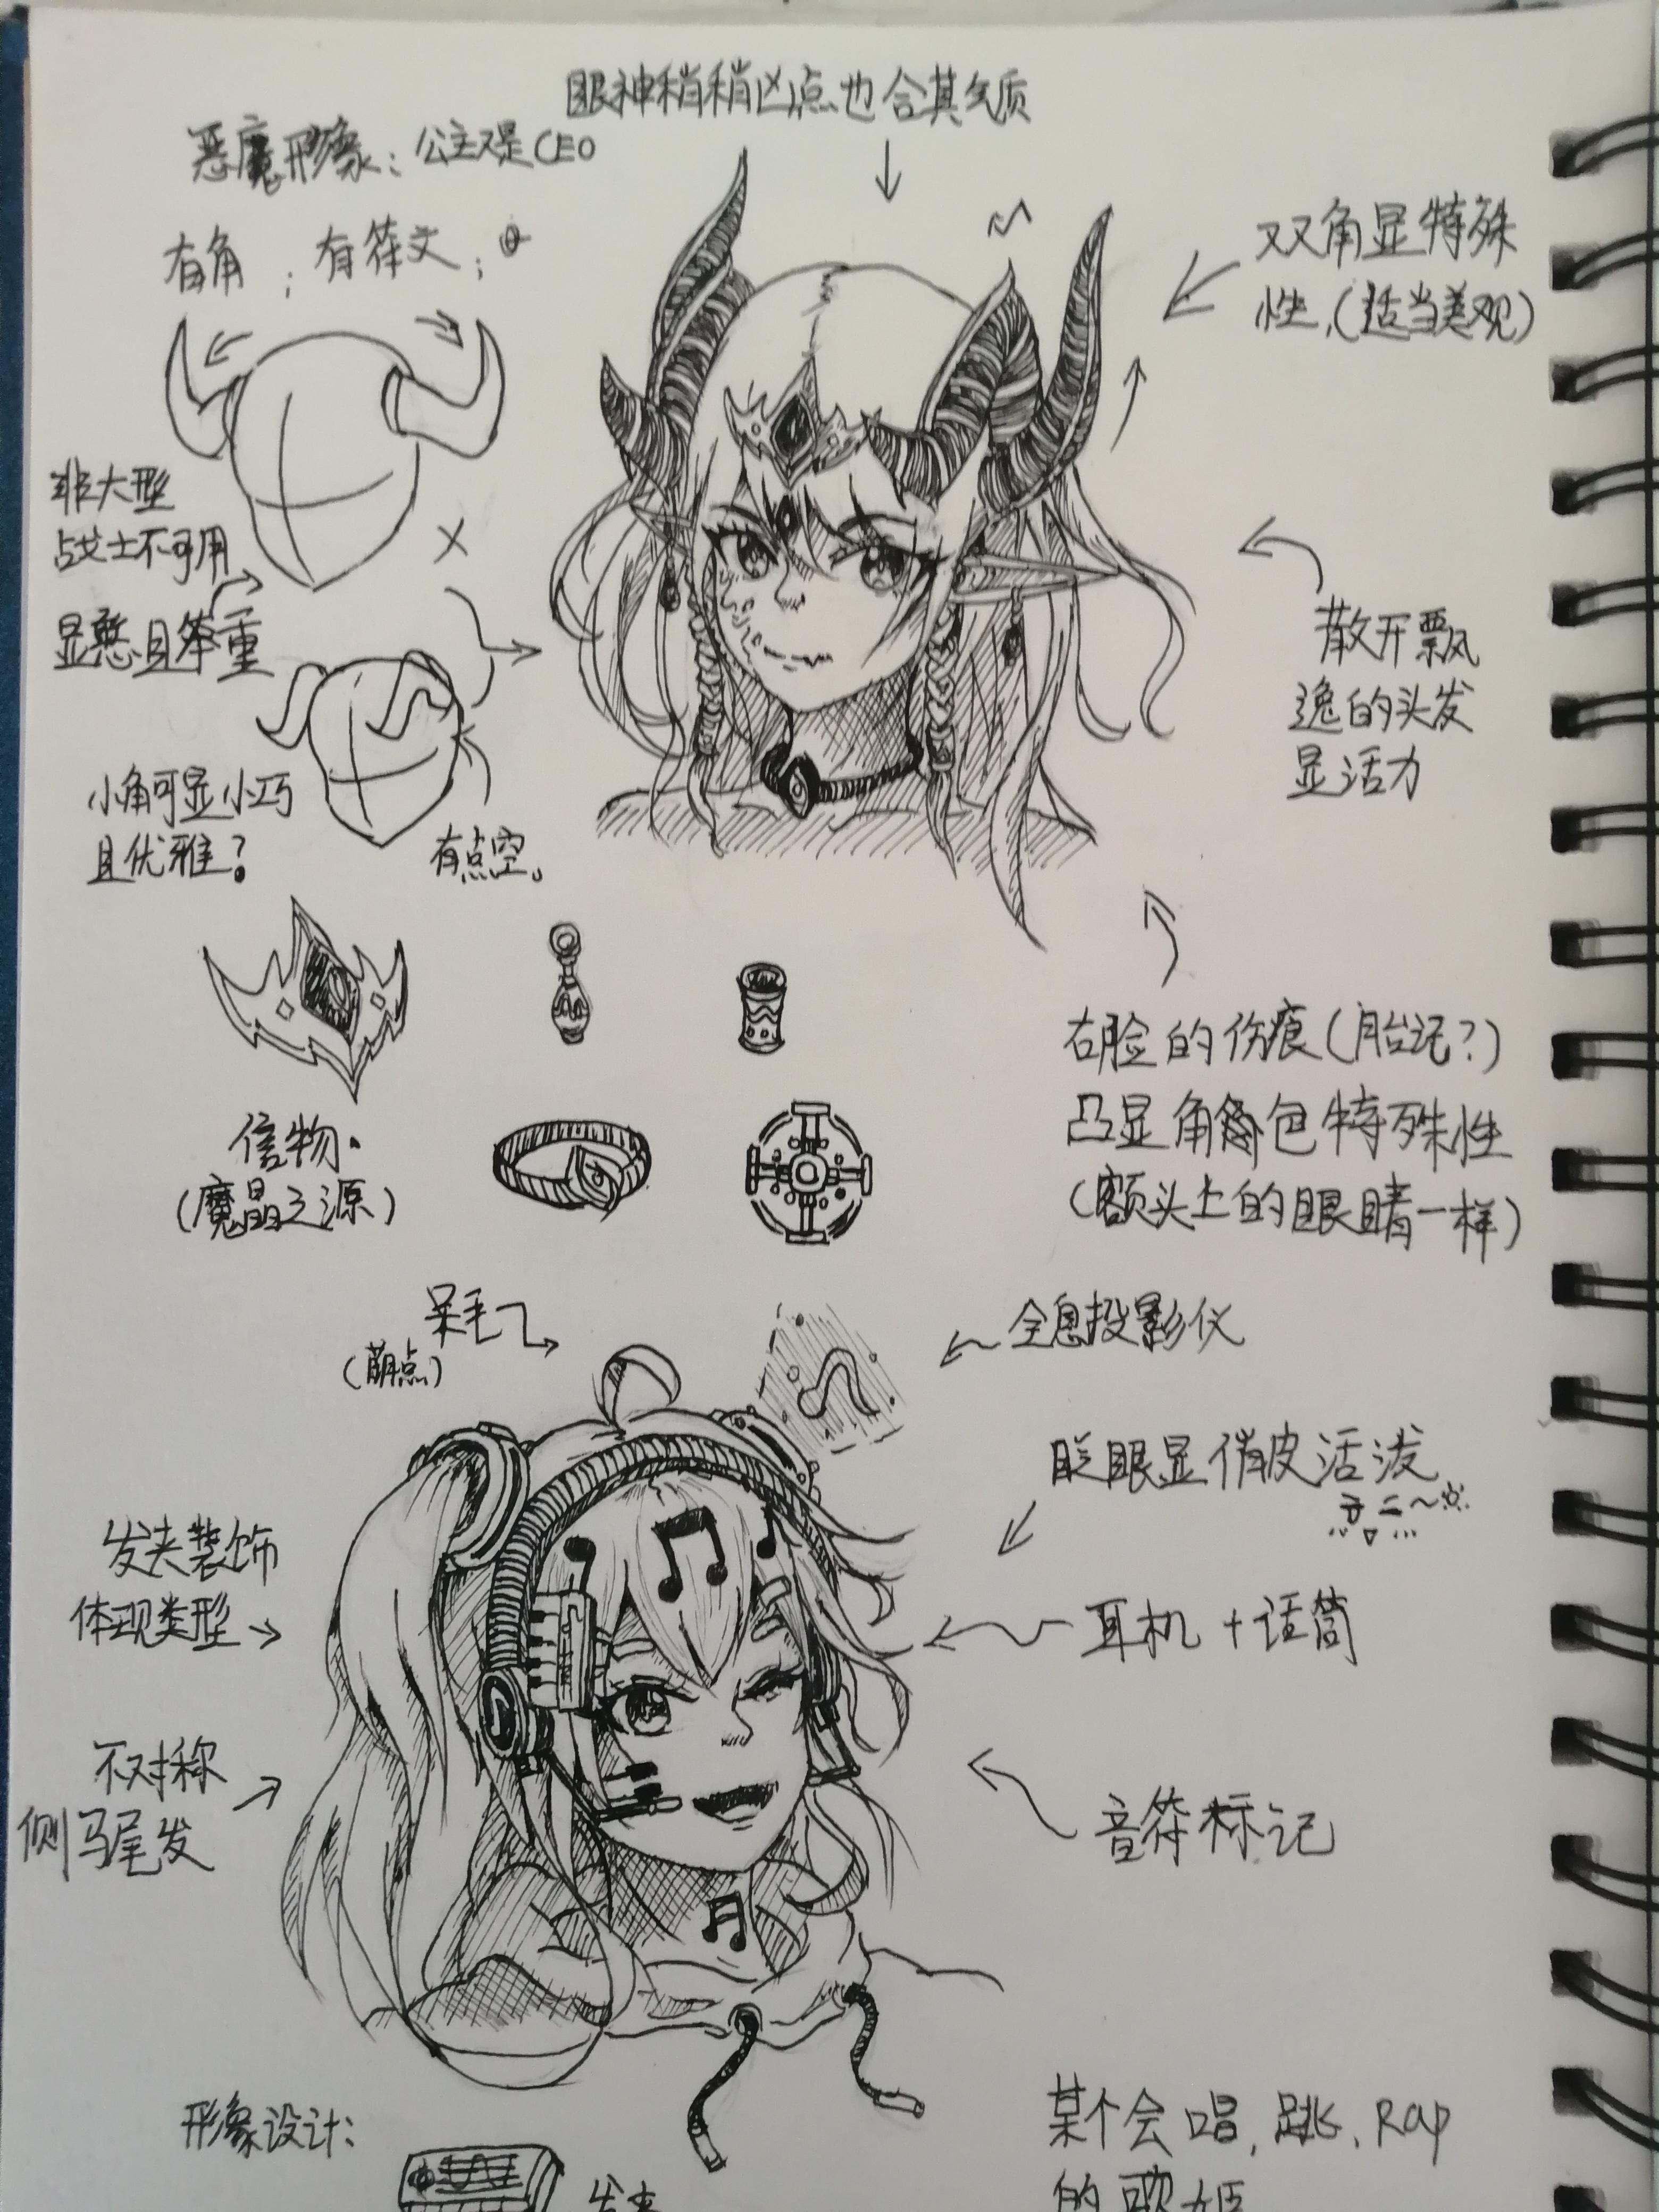 眼神稍稍凶点也合其气质
恶魔形象：公主又是CEO
有角；有符文；
双角显特殊
性，(适当美观)
非大型
战士不可用
显憨且笨重
散开飘
逸的头发
显活力
小角可显小巧
且优雅？
有点空。
右脸的伤痕(胎记？)
凸显角色特殊性
(额头上的眼睛一样)
信物.
(魔晶之源)
呆毛
(萌点)
全息投影仪
眨眼显俏皮活泼
发夹装饰
体现类型
耳机+话筒
不对称
侧马尾发
音符标记
形象设计：
某个会唱,跳,Rap
的歌姬
发夹